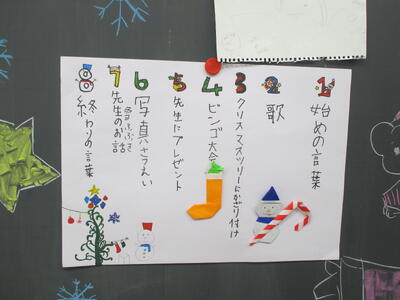 1 始めの言葉
2 歌
3 クリスマスツリーにかざり付け
4 ビンゴ大会
5 先生にプレゼント
6 写真さつえい
7 先生のお話
8 終わりの言葉